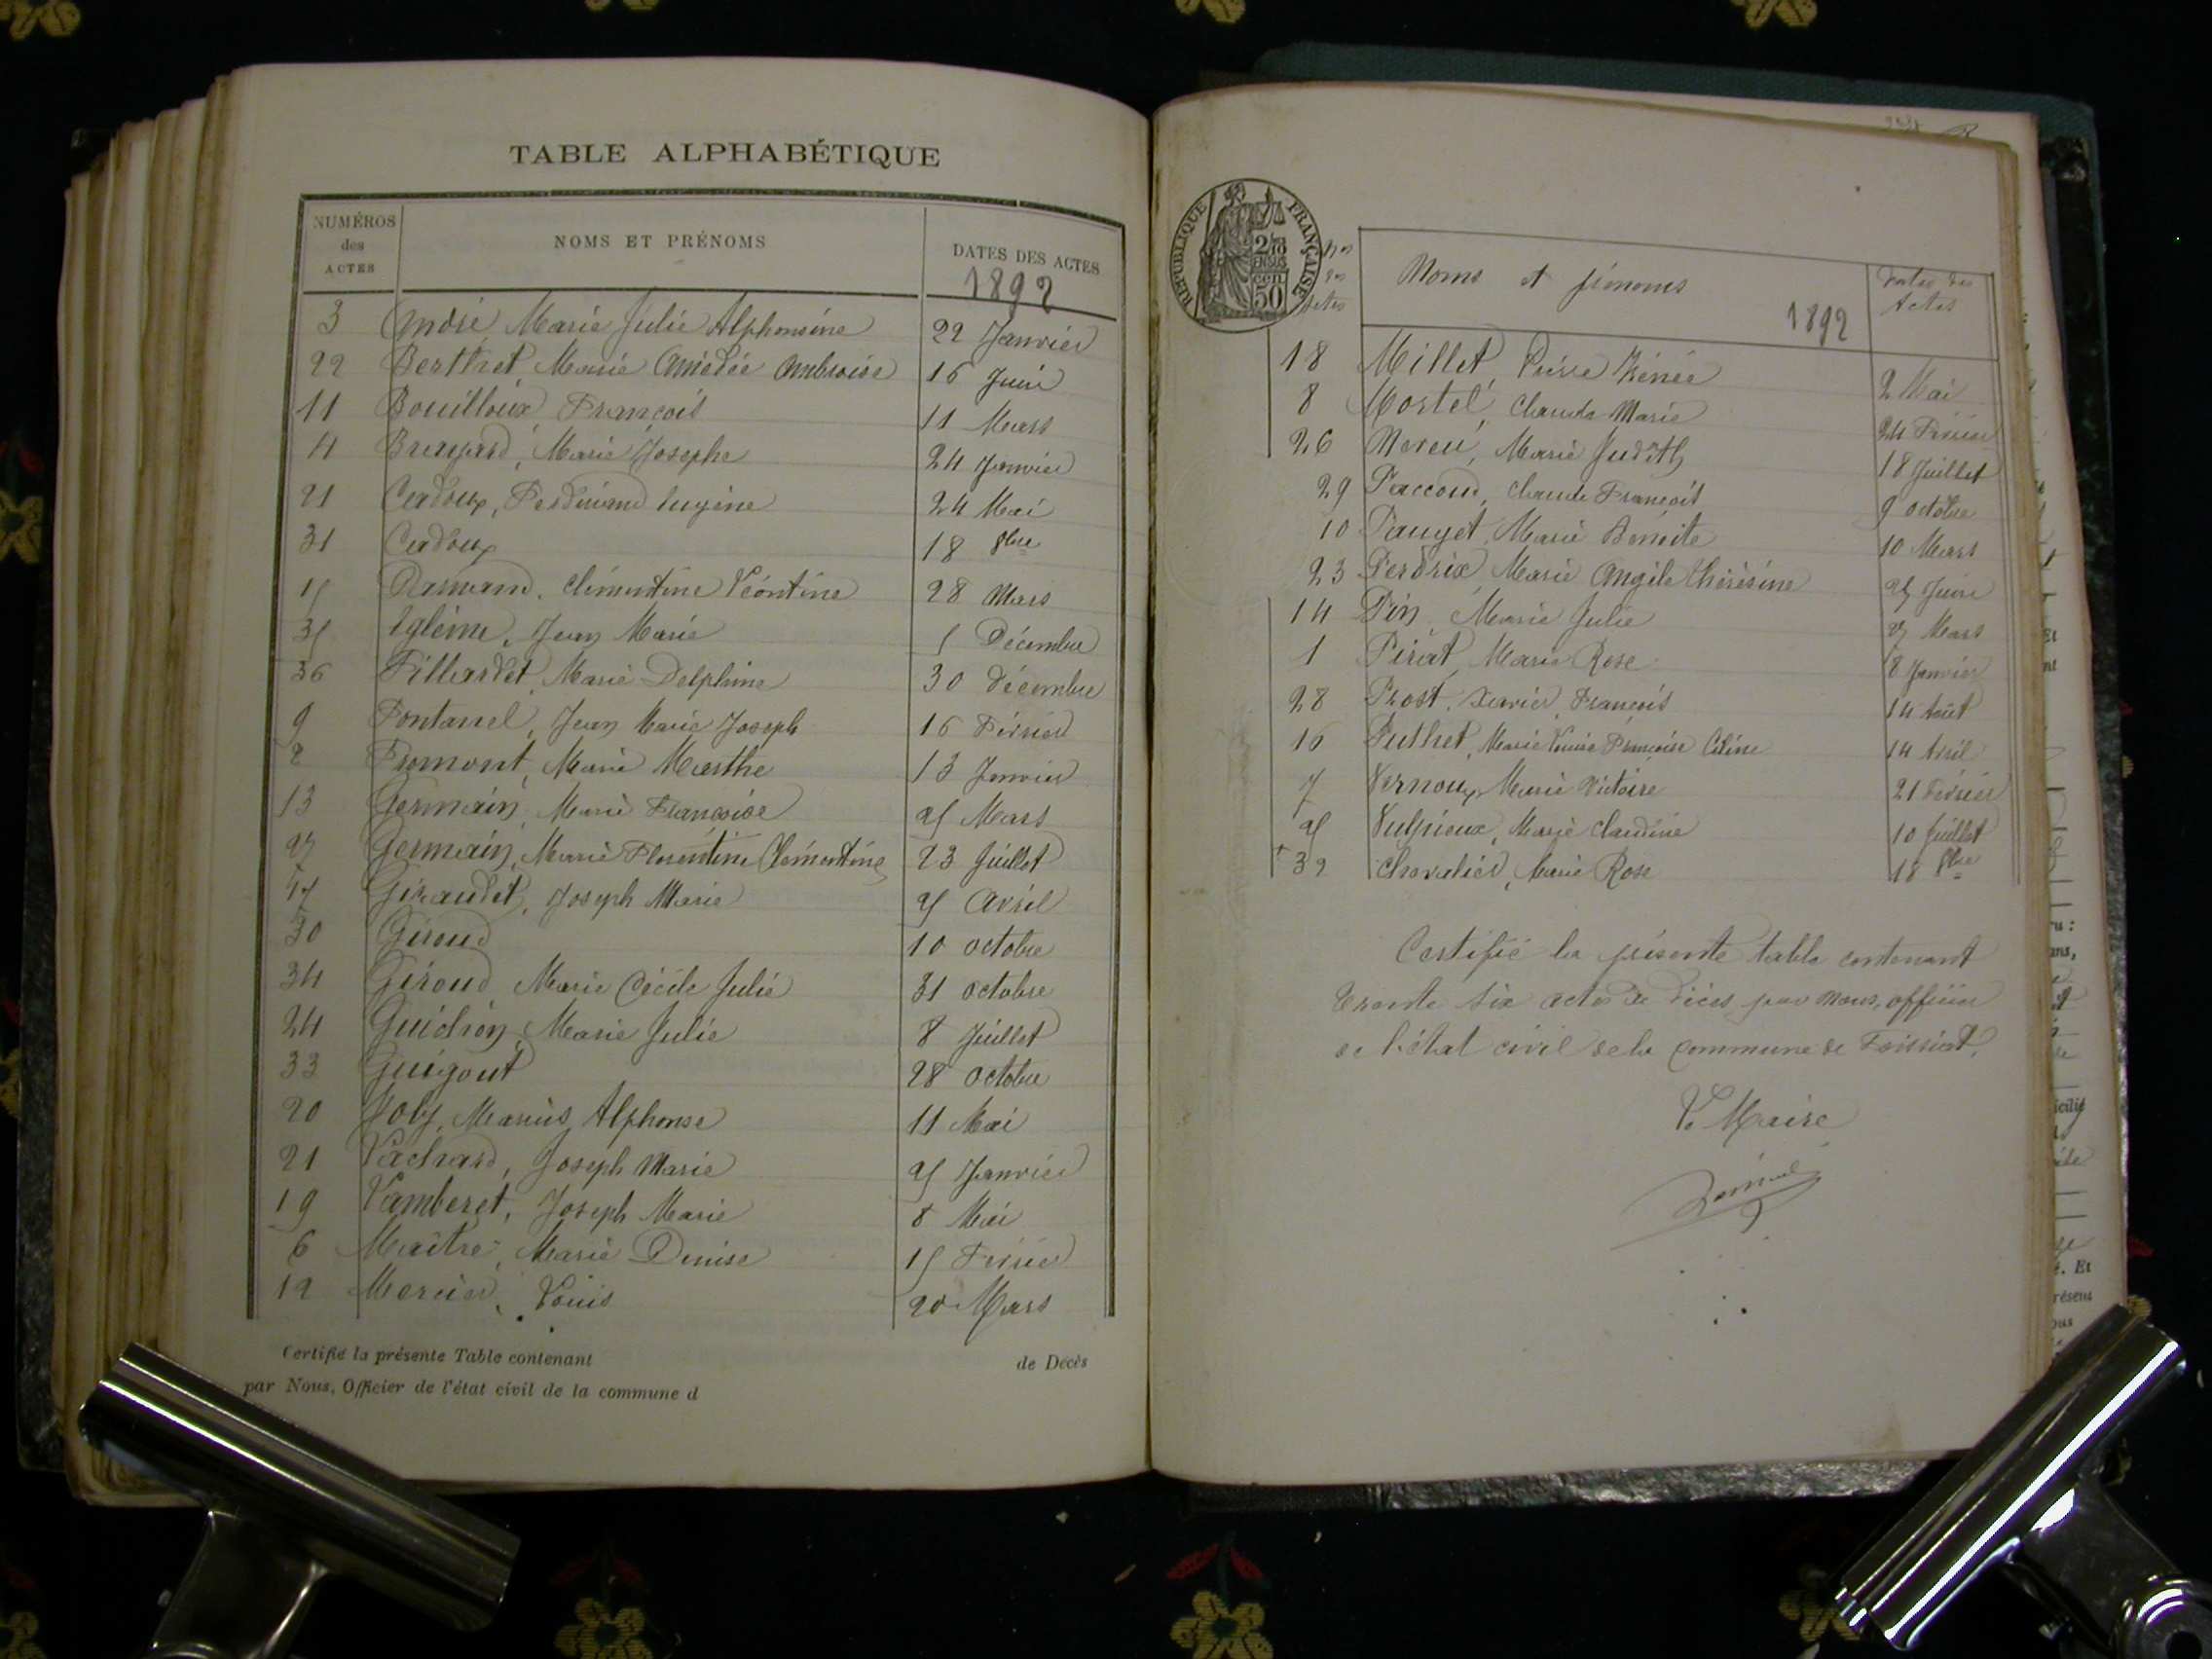 TABLE ALPHABÉTIQUE
NUMÉROS des ACTES NOMS ET PRÉNOMS DATES DES ACTES
1892
3 André Marie Julie Alphonsine 22 Janvier
22 Berthet Marie Amédée Ambroise 16 Juin
11 Bouilloux François 11 Mars
4 Brayard, Marie Josephe 24 Janvier
21 Cadoux, Ferdinand Eugène 24 Mai
31 Cadoux 18 8bre
15 Clémentine Léontine 28 Mars
35 Jean Marie 5 Décembre
36 Fillardet, Marie Delphine 30 décembre
9 Fontanel, Jean Marie Joseph 16 Février
2 Fromont, Marie Marthe 13 Janvier
13 Germain, Marie Françoise 25 Mars
27 Germain, Marie Florentine Clémentine 23 Juillet
17 Giraudet, Joseph Marie 25 Avril
30 Giroud 10 octobre
34 Giroud Marie Cécile Julie 31 octobre
24 Guidron, Marie Julie 8 Juillet
33 Guigout 28 octobre
20 Joly, Marius Alphonse 11 Mai
21 Lachard, Joseph Marie 25 Janvier
19 Lamberet, Joseph Marie 8 Mai
6 Maître, Marie Denise 15 Février
12 Mercier, Louis 20 Mars
Certifié la présente Table contenant de Décès
par Nous, Officier de l'état civil de la commune d
RÉPUBLIQUE FRANÇAISE
2/10 EN SUS
50
Nos des Actes Noms et prénoms 1892 Dates des Actes
18 Millet Pierre Irénée 2 Mai
8 Mortel, Claude Marie 24 Février
26 Nereu, Marie Judith 18 Juillet
29 Paccoud, Claude François 9 octobre
10 Pauget, Marie Benoite 10 Mars
23 Perdrix, Marie Angèle thérèsine 25 Juin
14 Pin, Marie Julie 27 Mars
1 Pirat, Marie Rose 8 Janvier
28 Prost, Xavier François 14 Août
16 Puthet, Marie Louise Françoise Céline 14 Avril
7 Vernoux, Marie Victoire 21 Février
25 Vulpieux, Marie Claudine 10 Juillet
+ 32 Chevalier, Marie Rose 18 8bre
Certifié la présente table contenant
trente six actes de décès par nous, officier
de l'état civil de la commune de Foissiat.
Le Maire